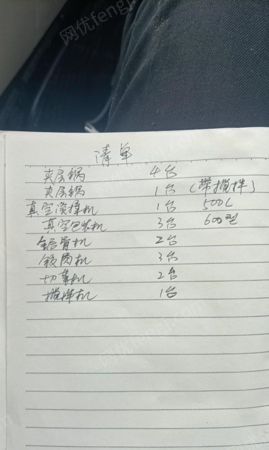 清单
夹层锅 4台
夹层锅 1台 (带搅拌)
真空滚揉机 1台 500L
真空包装机 3台 600型
锯骨机 2台
绞肉机 3台
切菜机 2台
搅拌机 1台